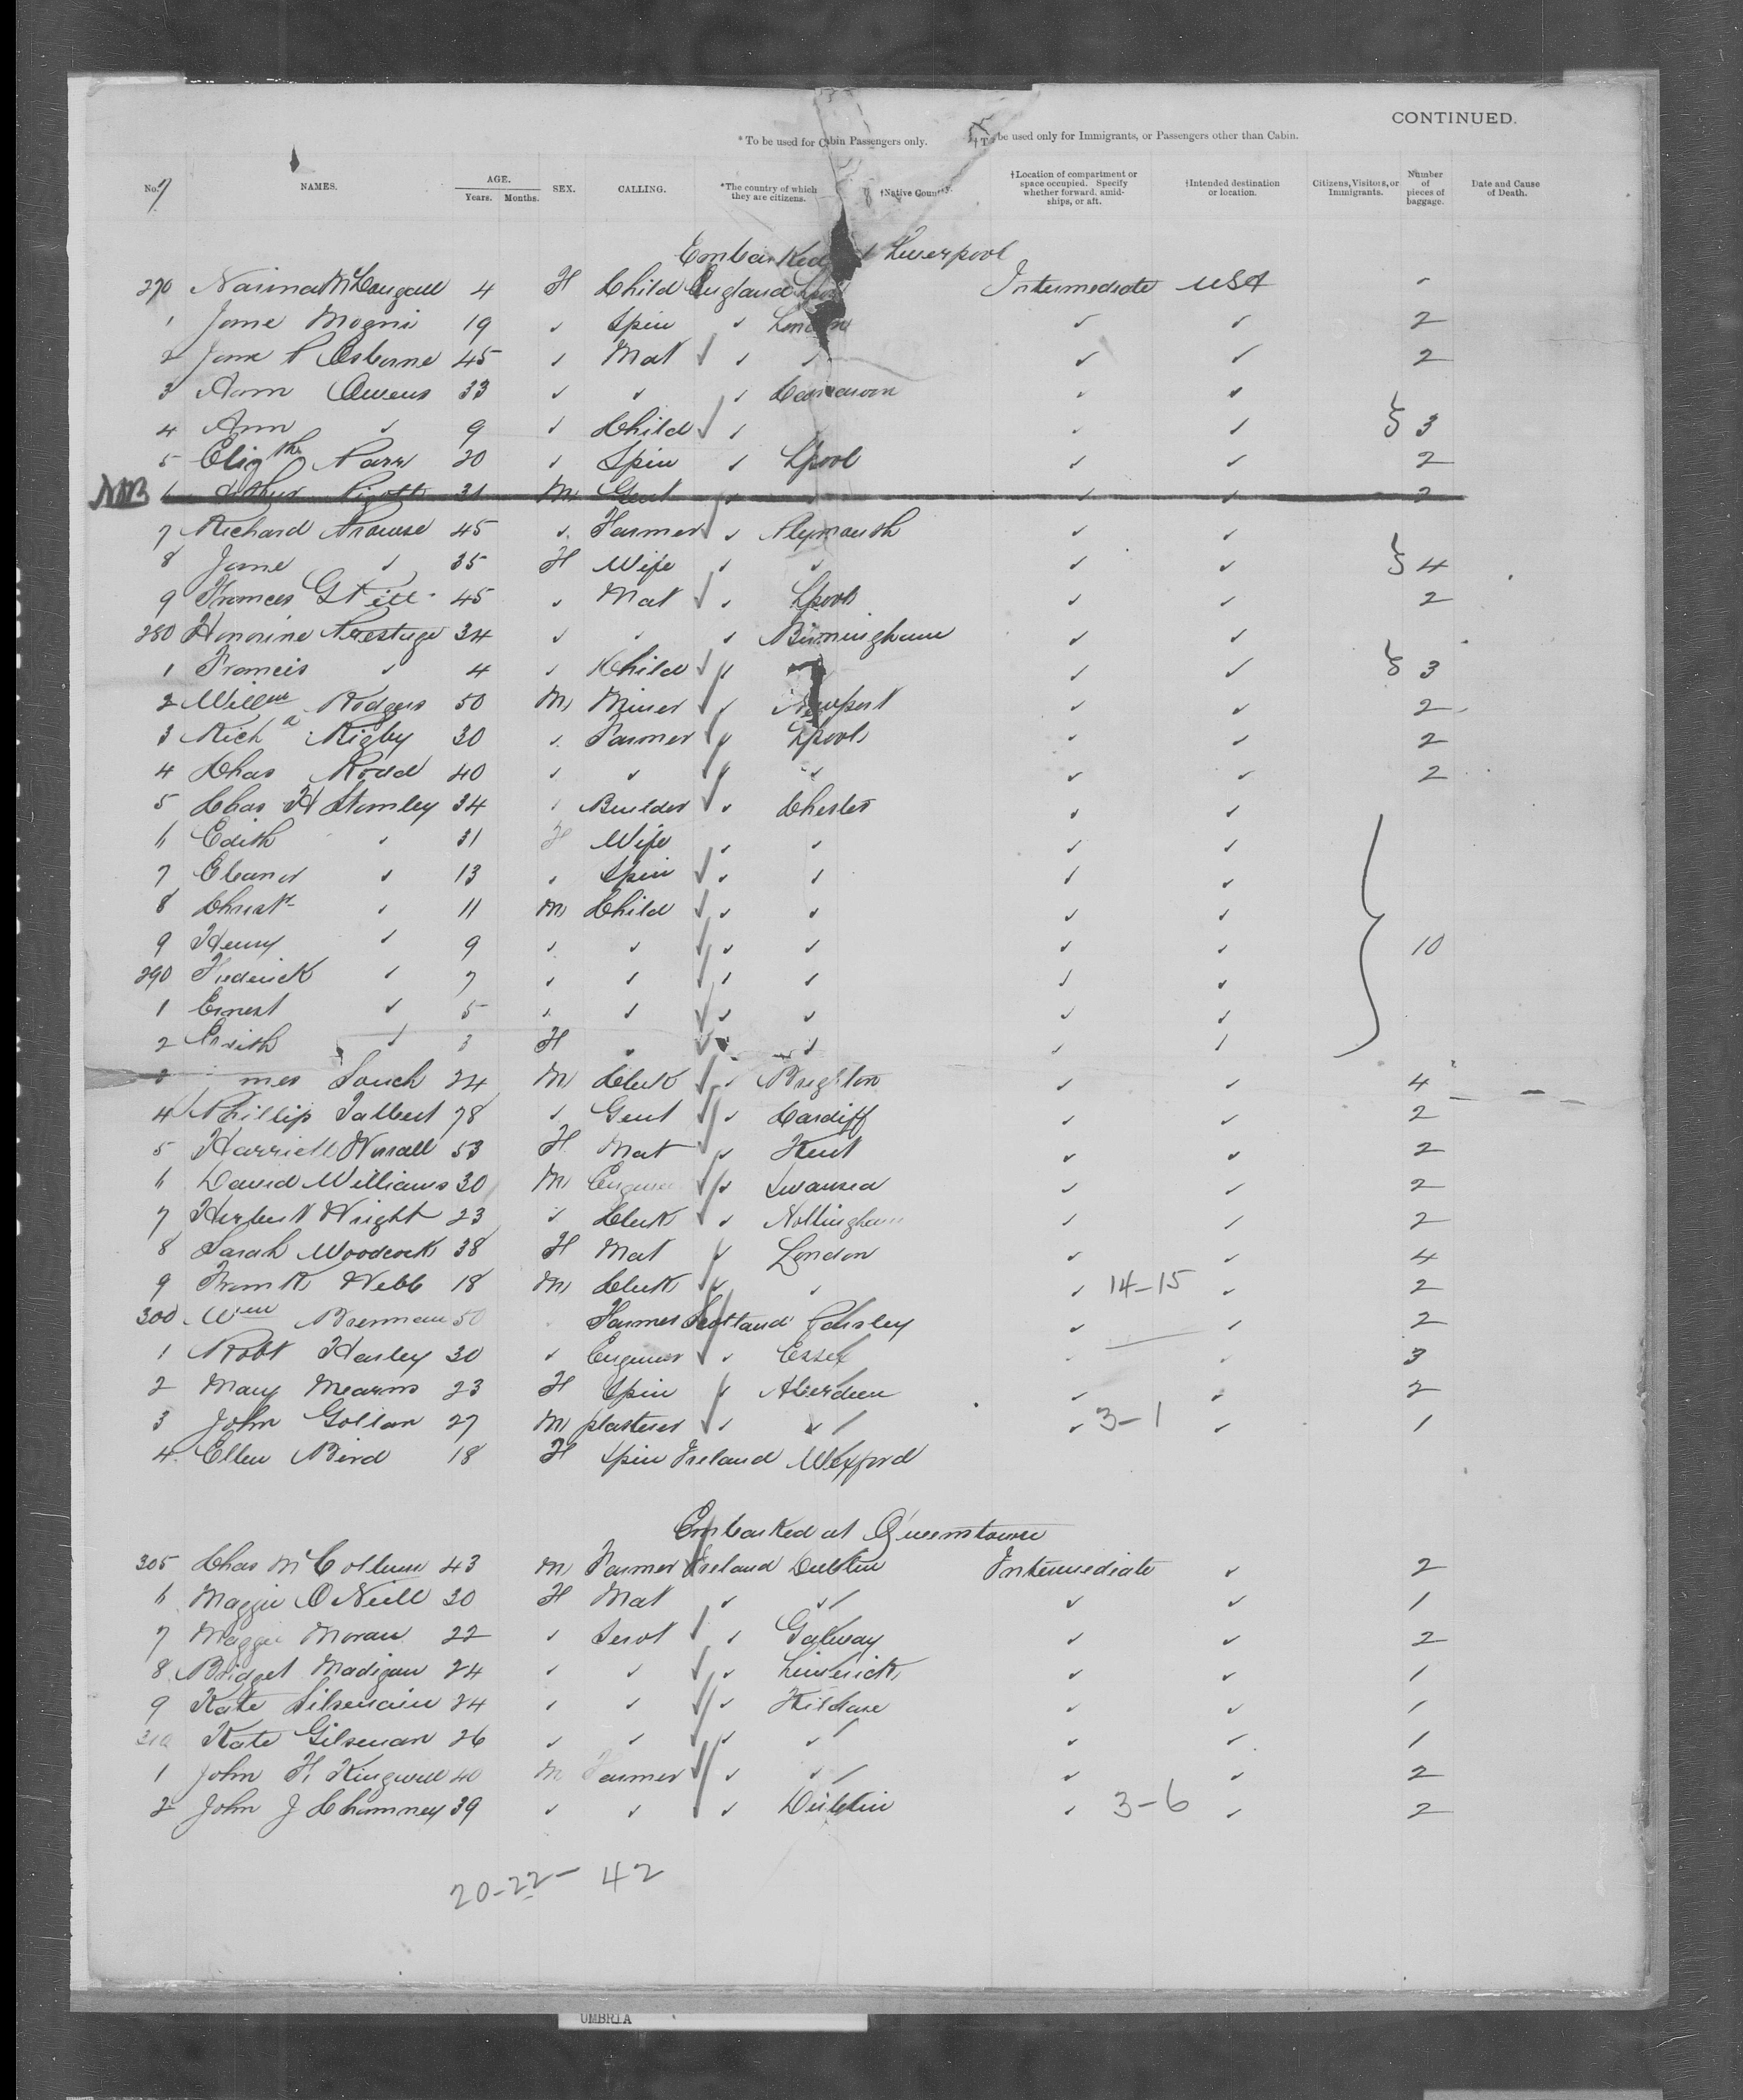 CONTINUED.
* To be used for Cabin Passengers only. † To be used only for Immigrants, or Passengers other than Cabin.
No. 7 NAMES. AGE. Years. Months. SEX. CALLING. *The country of which they are citizens. †Native Country. †Location of compartment or space occupied. Specify whether forward, amidships, or aft. †Intended destination or location. Citizens, Visitors, or Immigrants. Number of pieces of baggage. Date and Cause of Death.
Embarked at Liverpool
270 McDougall 4 F Child England Intermediate USA
1 Jane 19 ✓ Spin ✓ London ✓ ✓ 2
2 Jane P Osborne 45 ✓ Mat ✓ ✓ ✓ ✓ 2
3 Ann Owens 33 ✓ ✓ ✓ Carnarvon ✓ ✓
4 Ann ✓ 9 ✓ Child ✓ ✓ ✓ } 3
5 Elizth Parr 20 ✓ Spin ✓ Lpool ✓ ✓ 2
NB 6 Arthur Pigott 31 M Gent ✓ ✓ ✓ ✓ 2
7 Richard 45 ✓ Farmer ✓ Plymouth ✓ ✓
8 Jane ✓ 35 F Wife ✓ ✓ ✓ ✓ } 4
9 Frances G 45 ✓ Mat ✓ Lpool ✓ ✓ 2
280 Honorine Prestige 34 ✓ ✓ ✓ Birmingham ✓ ✓
1 Francis ✓ 4 ✓ Child ✓ ✓ ✓ } 3
2 Willm Rodgers 50 M Miner ✓ Newport ✓ ✓ 2
3 Richd Rigby 30 ✓ Farmer ✓ Lpool ✓ ✓ 2
4 Chas Rodd 40 ✓ ✓ ✓ ✓ ✓ ✓ 2
5 Chas H Stanley 34 ✓ Builder ✓ Chester ✓ ✓
6 Edith ✓ 31 F Wife ✓ ✓ ✓ ✓
7 Eleanor ✓ 13 ✓ Spin ✓ ✓ ✓ ✓
8 Christr ✓ 11 M Child ✓ ✓ ✓ ✓
9 Henry ✓ 9 ✓ ✓ ✓ ✓ ✓ ✓ } 10
290 Frederick ✓ 7 ✓ ✓ ✓ ✓ ✓ ✓
1 Ernest ✓ 5 ✓ ✓ ✓ ✓ ✓ ✓
2 ✓ 3 F ✓ ✓ ✓ ✓ ✓
3 mes Souch 24 M Clerk ✓ Brighton ✓ ✓ 4
4 Phillip Talbert 78 ✓ Gent ✓ Cardiff ✓ ✓ 2
5 Harriett 53 F Mat ✓ Kent ✓ ✓ 2
6 David Williams 30 M Engineer ✓ Swansea ✓ ✓ 2
7 Herbert Wright 23 ✓ Clerk ✓ Nottingham ✓ ✓ 2
8 Sarah Woodcock 38 F Mat ✓ London ✓ ✓ 4
9 Frank Webb 18 M Clerk ✓ ✓ ✓ 14-15 ✓ 2
300 Wm Brennan 50 Farmer Scotland Paisley ✓ ✓ 2
1 Robt Harley 30 ✓ Engineer ✓ Essex ✓ ✓ 3
2 Mary Mearns 23 F Spin ✓ Aberdeen ✓ ✓ 2
3 John Gollan 27 M plasterer ✓ ✓ ✓ 3-1 ✓ 1
4 Ellen Bird 18 F Spin Ireland Wexford
Embarked at Queenstown
305 Chas McCollum 43 M Farmer Ireland Dublin Intermediate ✓ 2
6 Maggie O Neill 30 F Mat ✓ ✓ ✓ ✓ 1
7 Maggie Moran 22 ✓ Servt ✓ Galway ✓ ✓ 2
8 Bridget Madigan 24 ✓ ✓ ✓ Limerick ✓ ✓ 1
9 Kate 24 ✓ ✓ ✓ Kildare ✓ ✓ 1
310 Kate Gilsenan 26 ✓ ✓ ✓ ✓ ✓ ✓ 1
1 John H Kingwell 40 M Farmer ✓ ✓ ✓ ✓ 2
2 John J Chamney 39 ✓ ✓ ✓ Dublin ✓ 3-6 ✓ 2
20-22- 42
UMBRIA